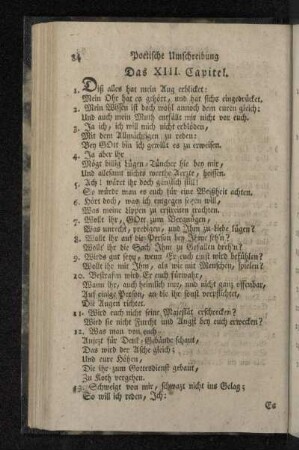 24 Poetische Umschreibung
Das XIII. Capitel.
1. Diß alles hat mein Aug erblicket:
Mein Ohr hat es gehört, und hat sichs eingedrücket.
2. Mein Wissen ist doch wohl annoch dem euren gleich;
Und auch mein Muth entfällt mir nicht vor euch.
3. Ja ich, ich will mich nicht entblöden,
Mit dem Allmächtigen zu reden:
Bey GOtt bin ich gewillt es zu erweisen.
4. Ja aber ihr
Mögt billig Lügen-Tüncher hie bey mir,
Und allesamt nichts werthe Aerzte, heissen.
5. Ach! wäret ihr doch gäntzlich still!
So würde man es euch für eine Weißheit achten.
6. Hört doch, was ich entgegen sagen will,
Was meine Lippen zu erinnern trachten.
7. Wollt ihr, GOtt zum Vergnügen,
Was unrecht, predigen, und Ihm zu Liebe lügen?
8. Wollt ihr auf die Person bey Ihme seh'n?
Wollt ihr die Sach Ihm zu Gefallen dreh'n?
9. Wirds gut seyn, wenn Er euch wird befühlen?
Wollt ihr mit Ihm, als wie mit Menschen, spielen?
10. Bestrafen wird Er euch fürwahr,
Wann ihr, auch heimlich nur, und nicht gantz offenbar,
Auf einige Person, an die ihr sonst verpflichtet,
Die Augen richtet.
11. Wird euch nicht seine Majestät erschrecken?
Wird sie nicht Furcht und Angst bey euch erwecken?
12. Was man von euch
Anjezt für Denk-Gebäude schaut,
Das wird der Asche gleich;
Und eure Höhen,
Die Ihr zum Gottesdienst gebaut,
Zu Koth vergehen.
13. Schweigt von mir, schwazt nicht ins Gelag;
So will ich reden, Ich:
Es